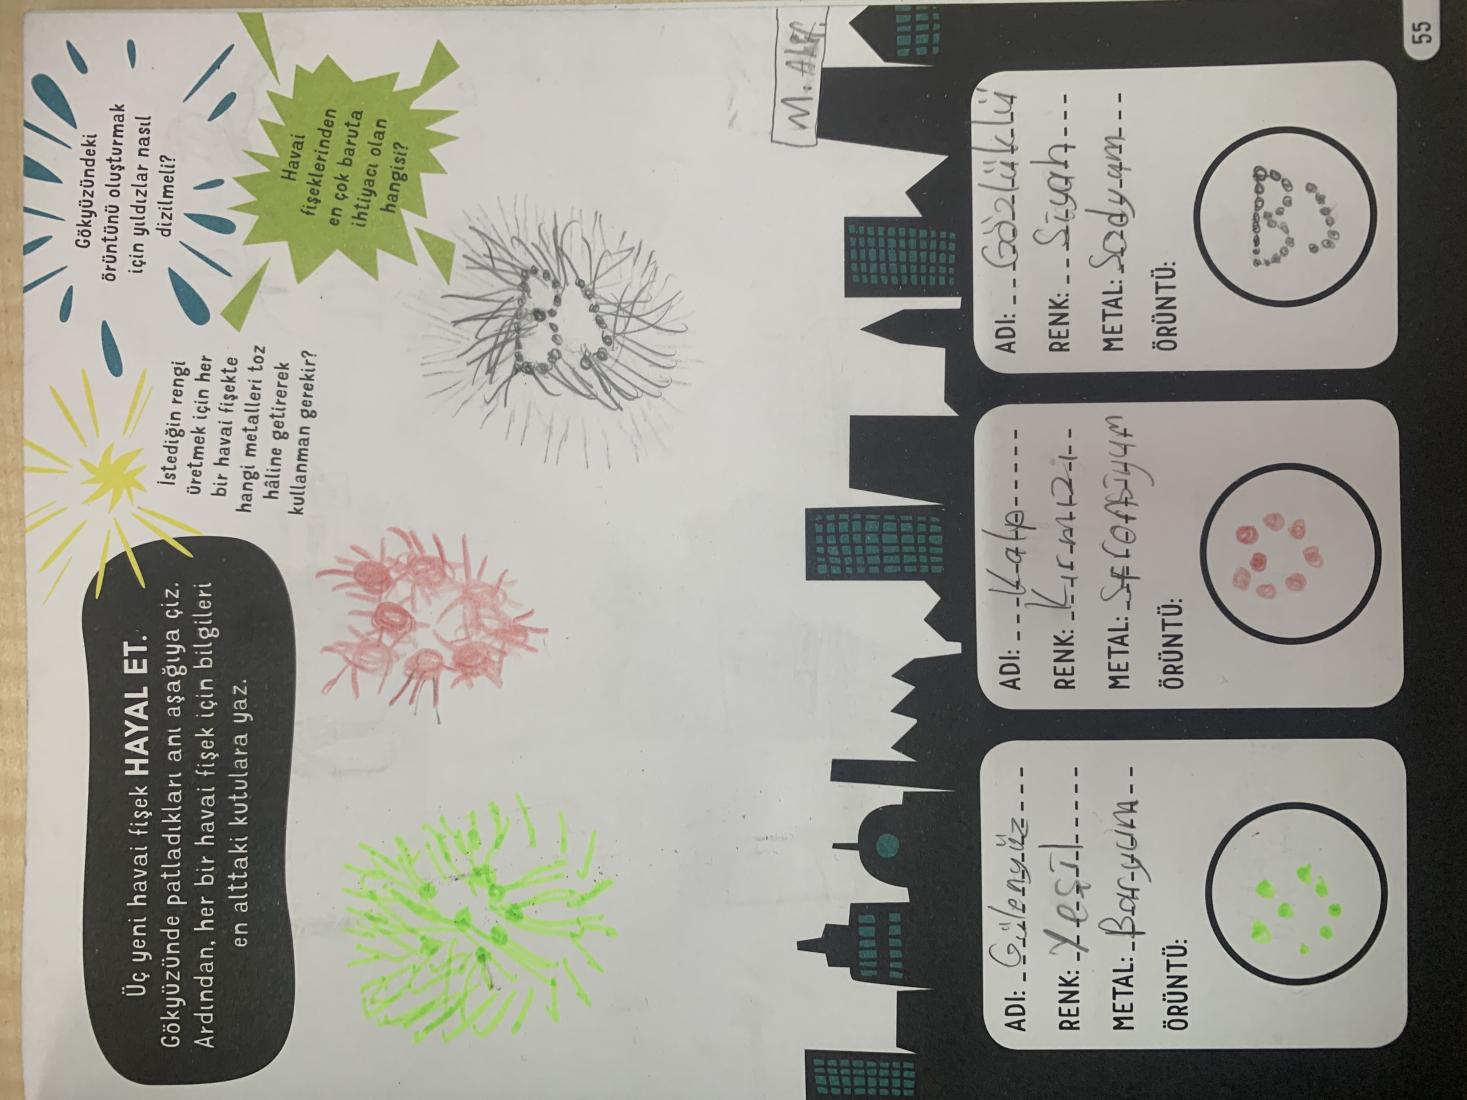 Üç yeni havai fişek HAYAL ET.
Gökyüzünde patladıkları anı aşağıya çiz.
Ardından, her bir havai fişek için bilgileri
en alttaki kutulara yaz.
İstediğin rengi
üretmek için her
bir havai fişekte
hangi metalleri toz
hâline getirerek
kullanman gerekir?
Gökyüzündeki
örüntünü oluşturmak
için yıldızlar nasıl
dizilmeli?
Havai
fişeklerinden
en çok baruta
ihtiyacı olan
hangisi?
M. Alp.
ADI: Gülenyüz
RENK: Yeşil
METAL: Baryum
ÖRÜNTÜ:
ADI: Kalp
RENK: Kırmızı
METAL: Stronsiyum
ÖRÜNTÜ:
ADI: Gözlüklü
RENK: Siyah
METAL: Sodyum
ÖRÜNTÜ:
55